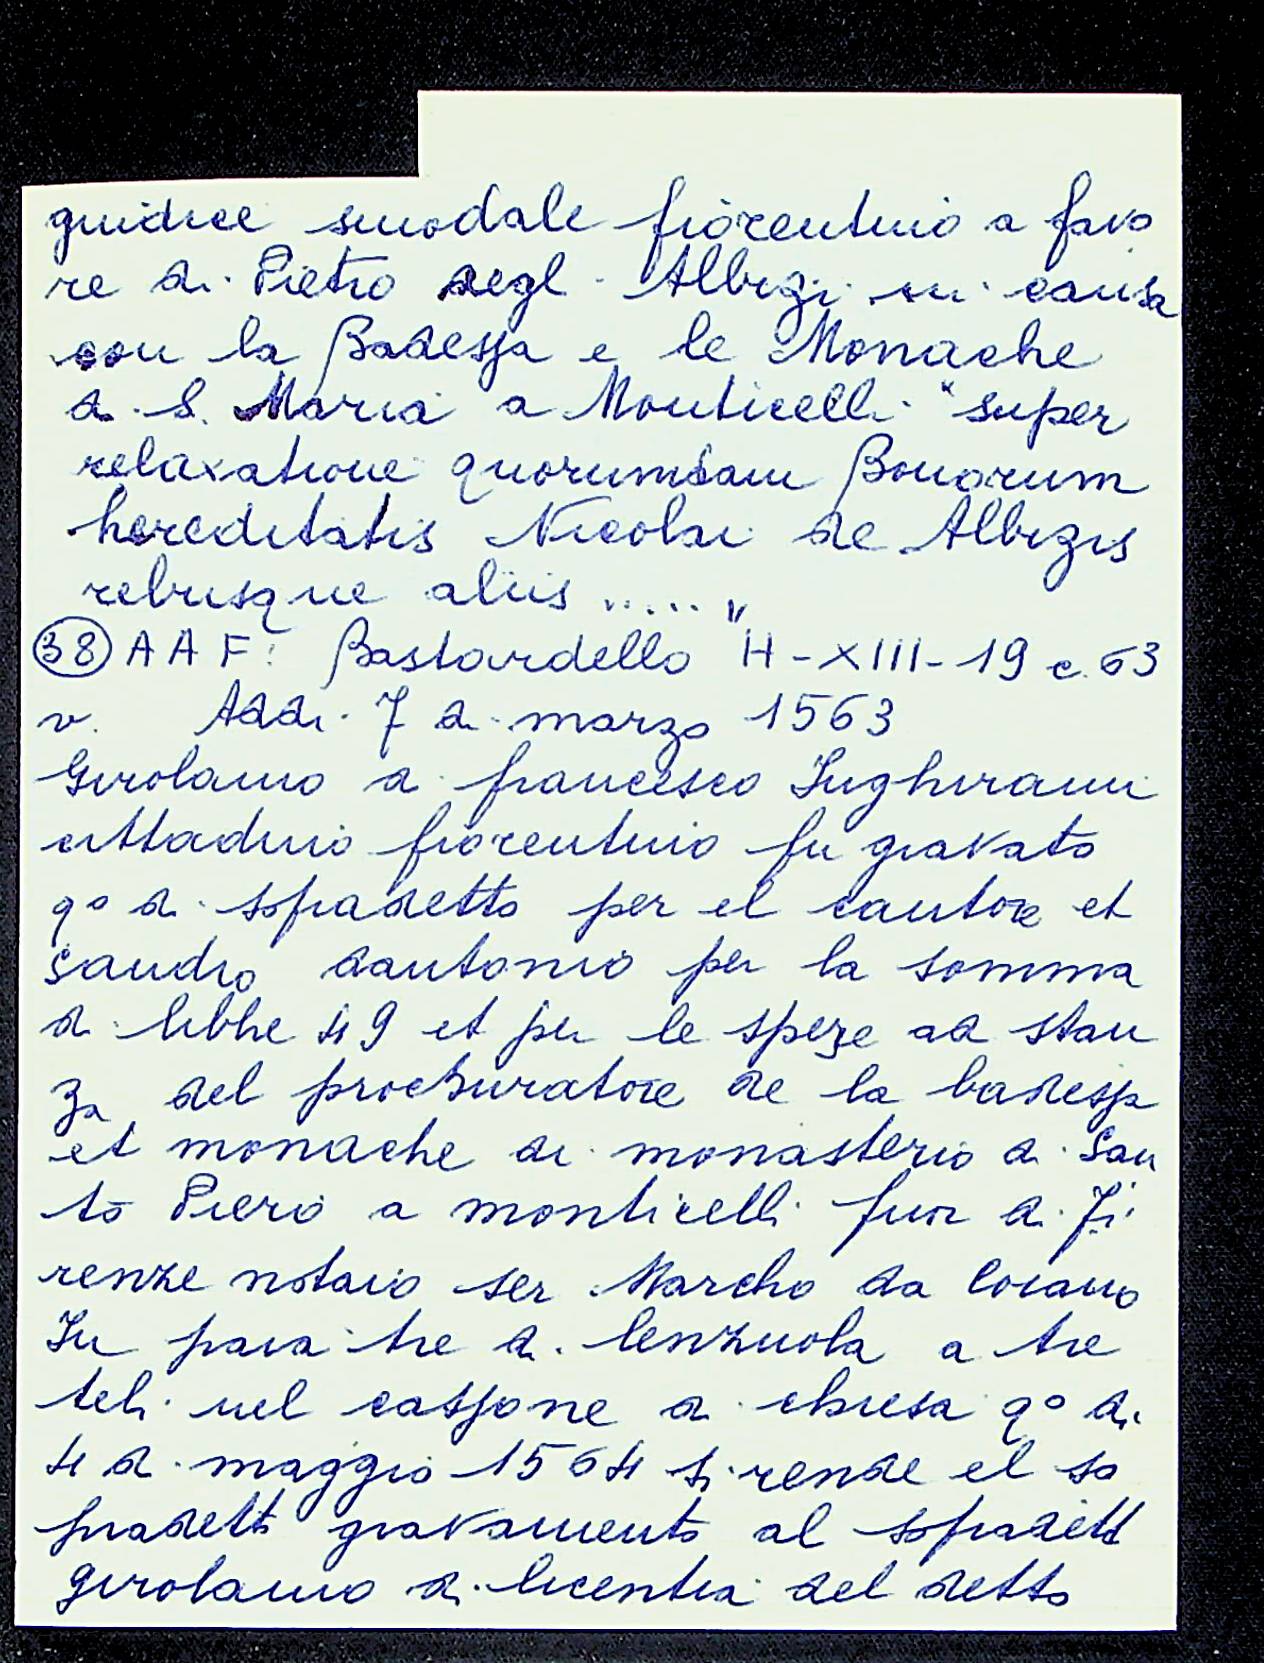 giudice sinodale fiorentino a favo
re di Pietro degl. Albizi in causa
con la Badessa e le Monache
di S. Maria a Monticelli "super
relaxatione quorumdam Bonorum
hereditatis Nicolai de Albizis
rebusque aliis ....."
38 AAF: Bastardello "H-XIII-19 c. 63
v. Addi 7 di marzo 1563
Girolamo di francesco Inghirami
cittadino fiorentino fu gravato
qo di sopradetto per el cantore et
Sandro dantonio per la somma
di libbre 49 et per le speze ad stan
za del prochuratore de la badessa
et monache di monasterio di San
to Piero a monticelli fuor di Fi
renze notaio ser Marcho da
In paia tre di lenzuola a tre
teli nel cassone di chiesa qo di
4 di maggio 1564 si rende el so
pradetti gravamento al sopradett
girolamo di licentia del detto